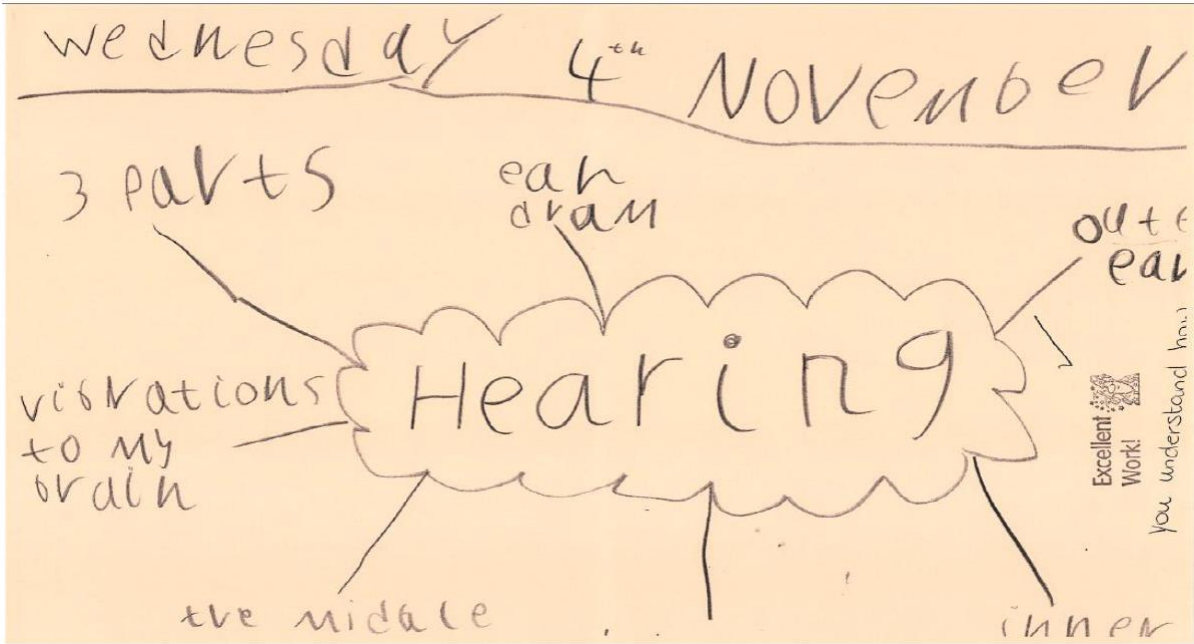 Wednesday 4th November
3 parts
ear
dram
oute
ear
Hearing
vibrations
to my
brain
Excellent
Work!
you understand how
the midale
inner